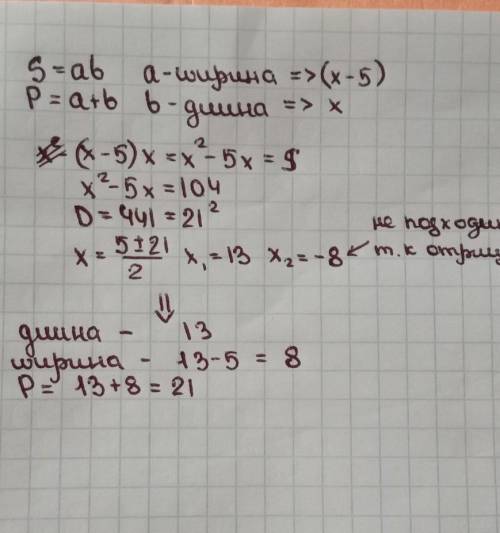 S = ab a - ширина => (x - 5)
P = a + b b - длина => x
(x - 5) x = x² - 5x = S
x² - 5x = 104
D = 441 = 21²
не подходи
x = (5 ± 21)/2 x₁ = 13 x₂ = -8 ← т.к отриц
⇓
длина - 13
ширина - 13 - 5 = 8
P = 13 + 8 = 21